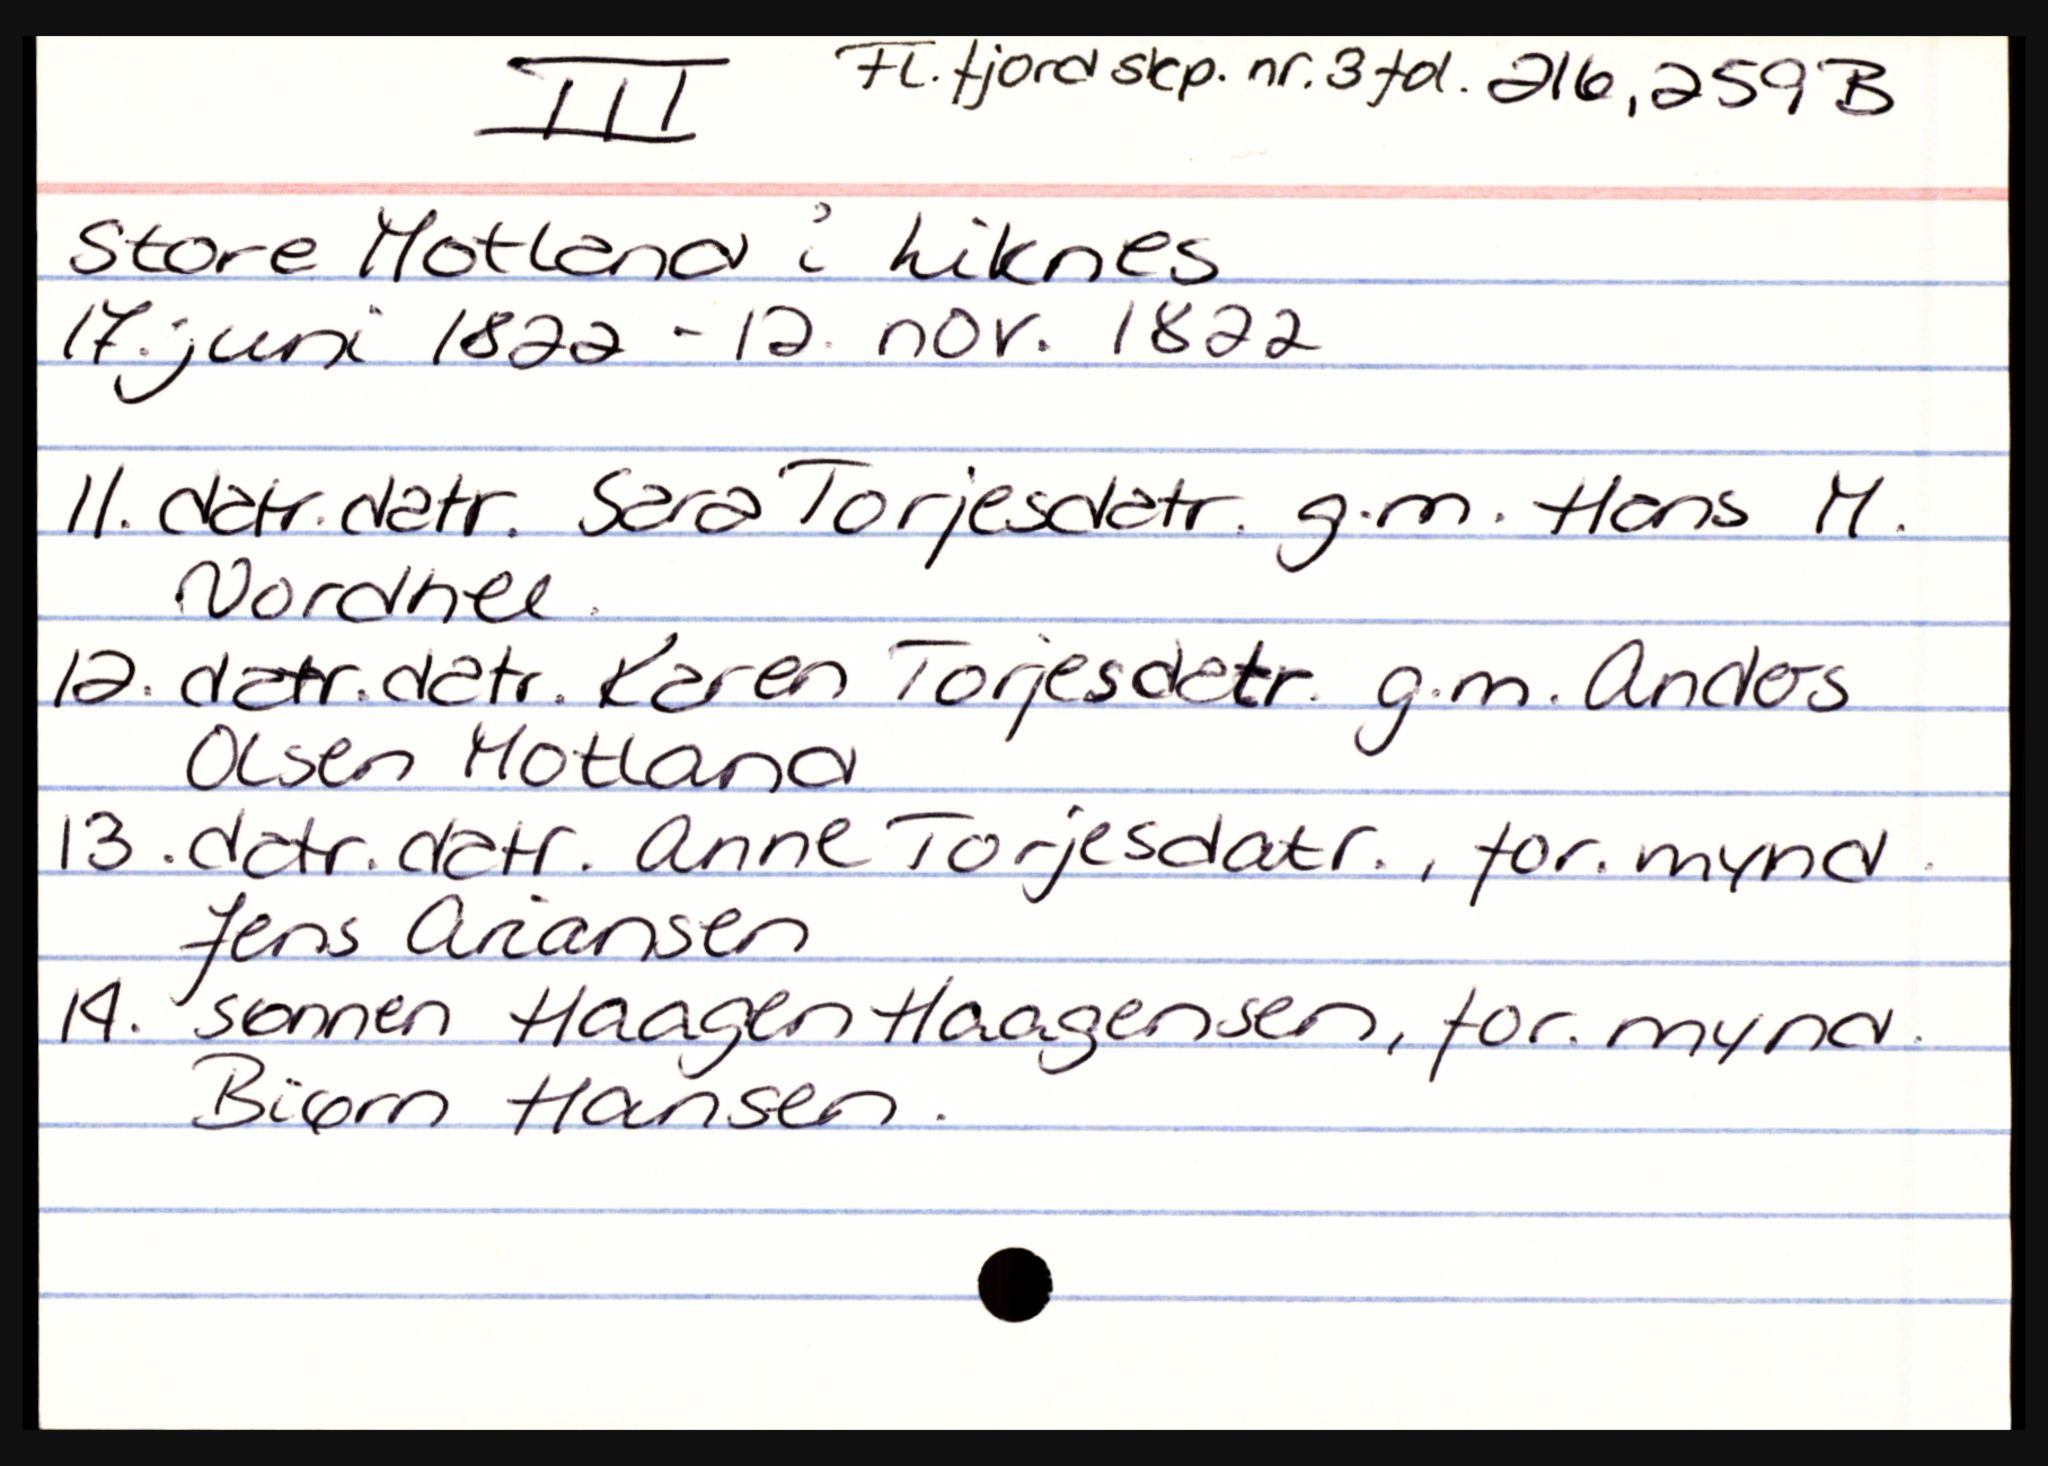 III Fl. fjord skp. nr. 3 fol. 216, 259B
Store Motland i Liknes
17. juni 1822 - 12. nov. 1822
11. datr. datr. Sara Torjesdatr. g.m. Hans M.
Nordhel.
12. datr. datr. Karen Torjesdatr. g.m. Anders
Olsen Motland
13. datr. datr. Anne Torjesdatr., for. mynd.
Jens Ariansen
14. sønnen Haagen Haagensen, for. mynd.
Biørn Hansen.